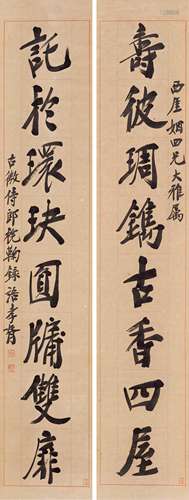 西厓姻四兄大雅属
壽彼琱鐫古香四屋
託於環玦圓牖雙扉
古微侍郎
孝胥